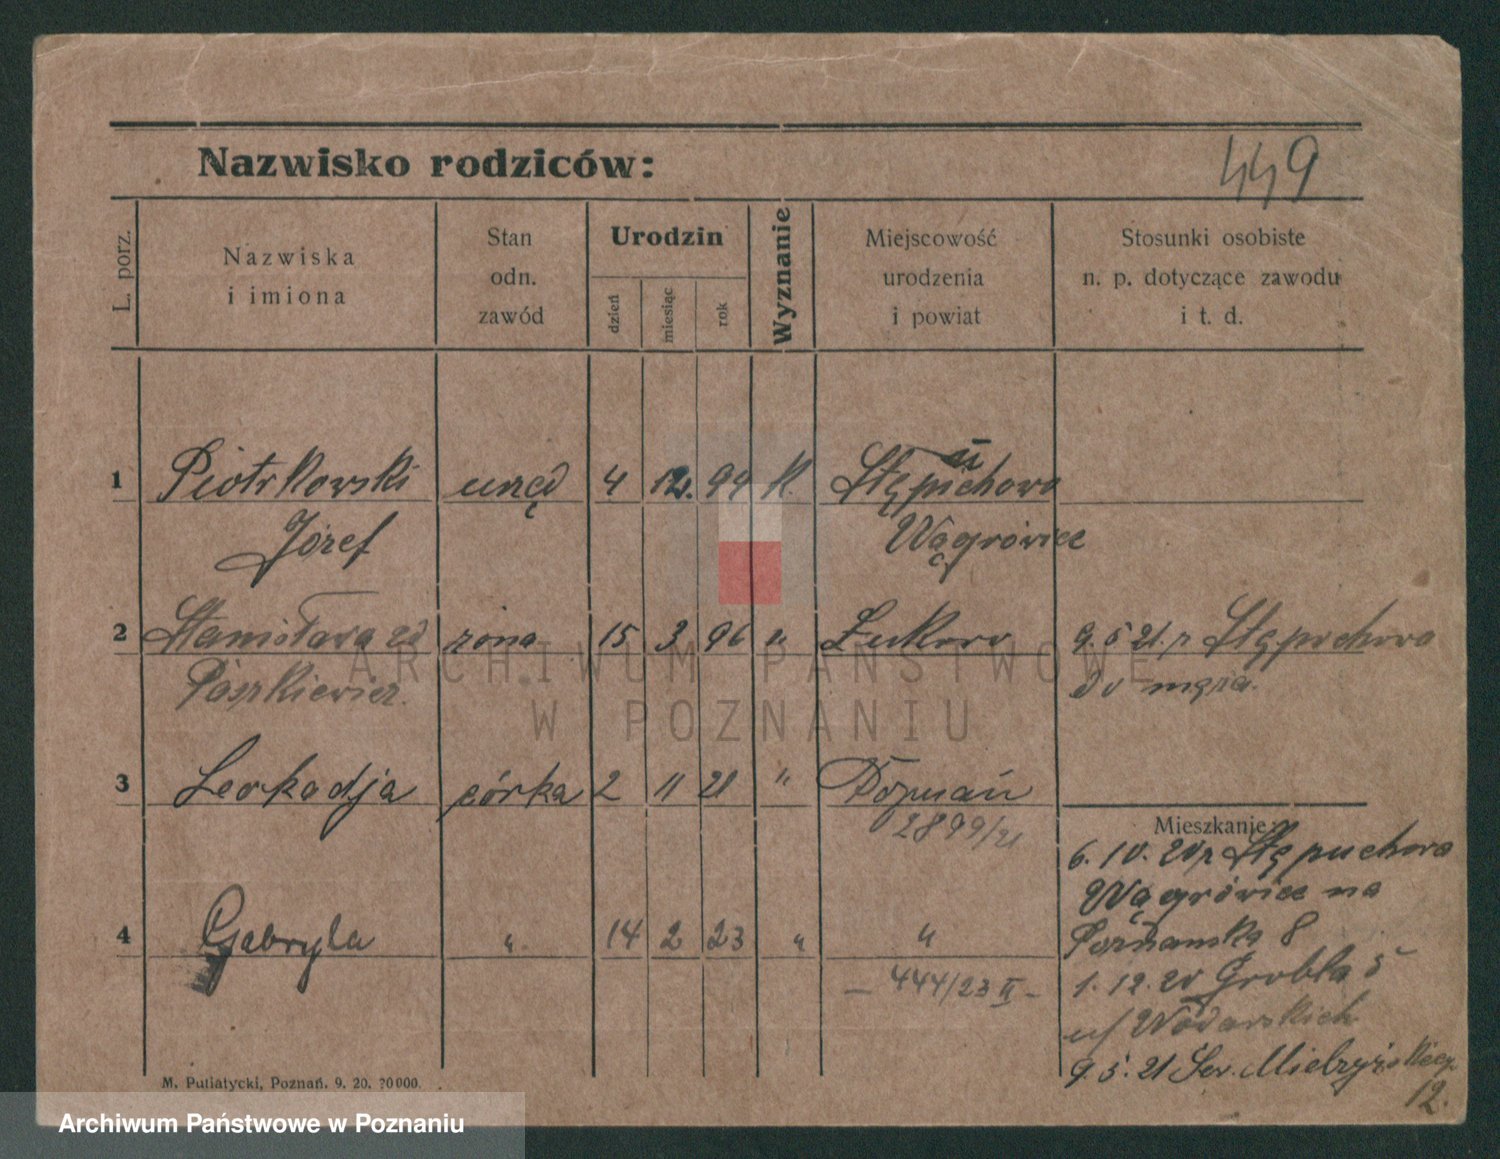 Nazwisko rodziców:
449
L. porz.
Nazwiska
i imiona
Stan
odn.
zawód
Urodzin
dzień
miesiąc
rok
Wyznanie
Miejscowość
urodzenia
i powiat
Stosunki osobiste
n. p. dotyczące zawodu
i t. d.
1 Piotrkowski urzęd 4 12. 94 k. Stępuchowo
Józef Wągrówiec
2 Stanisława zd żona 15 3 96 " Żukowo 9. 5 21. z Stępuchowo
Paszkiewicz. do męża.
3 Leokadja córka 2 11 21 " Poznań
2899/21
Mieszkanie:
6. 10. 20 z Stępuchowo
Wągrówiec na
4 Gabryla " 14 2 23 " " Poznańska 8
— 444/23 II — 1. 12. 20 Grobla 5
u/
9. 5. 21 Sew. Mielżyńskiego
12.
M. Putiatycki, Poznań. 9. 20. 20000.
ARCHIWUM PAŃSTWOWE
W POZNANIU
Archiwum Państwowe w Poznaniu